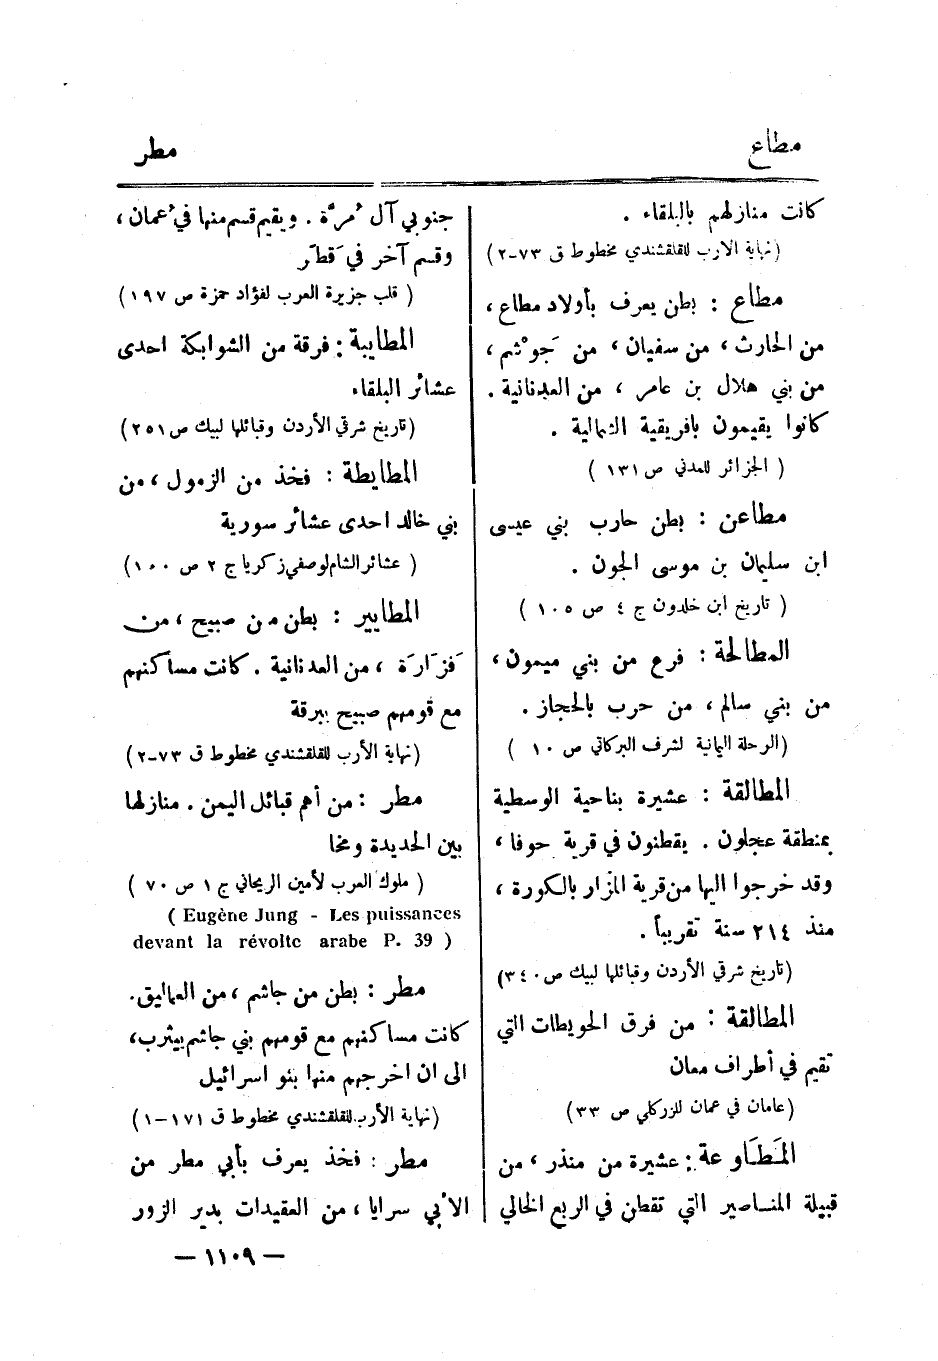 مطاع
مطر
كانت منازلهم بالبلقاء .
(نهاية الارب للقلقشندي مخطوط ق ٧٣-٢)
مطاع : بطن يعرف بأولاد مطاع ،
من الحارث ، من سفيان ، من جَوْثم ،
من بني هلال بن عامر ، من العدنانية .
كانوا يقيمون بافريقية الشمالية .
( الجزائر للمدني ص ١٣١ )
مطاعن : بطن حارب بني عيسى
ابن سليمان بن موسى الجون .
( تاريخ ابن خلدون ج ٤ ص ١٠٥ )
المطالحة : فرع من بني ميمون ،
من بني سالم ، من حرب بالحجاز .
(الرحلة اليمانية لشرف البركاتي ص ١٠ )
المطالقة : عشيرة بناحية الوسطية
بمنطقة عجلون . يقطنون في قرية حوفا ،
وقد خرجوا اليها من قرية المزار بالكورة ،
منذ ٢١٤ سنة تقريباً .
(تاريخ شرقي الأردن وقبائلها لبيك ص ٣٤٠)
المطالقة : من فرق الحويطات التي
تقيم في أطراف معان
(عامان في عمان للزركلي ص ٣٣)
المَطَاوعة : عشيرة من منذر ، من
قبيلة المناصير التي تقطن في الربع الخالي
جنوبي آل مُرَّة . ويقيم قسم منها في عُمان ،
وقسم آخر في قَطَر
( قلب جزيرة العرب لفؤاد حمزة ص ١٩٧)
المطايبة : فرقة من الشوابكة احدى
عشائر البلقاء
(تاريخ شرقي الأردن وقبائلها لبيك ص ٢٥١)
المطايطة : فخذ من الزمول ، من
بني خالد احدى عشائر سورية
( عشائر الشام لوصفي زكريا ج ٢ ص ١٠٠)
المطايير : بطن من صبيح ، من
فَزَارَة ، من العدنانية . كانت مساكنهم
مع قومهم صبيح ببرقة
(نهاية الأرب للقلقشندي مخطوط ق ٧٣-٢)
مطر : من أهم قبائل اليمن . منازلها
بين الحديدة ومخا
( ملوك العرب لأمين الريحاني ج ١ ص ٧٠ )
( Eugène Jung - Les puissances
devant la révolte arabe P. 39 )
مطر : بطن من جاشم ، من العماليق.
كانت مساكنهم مع قومهم بني جاشم بيثرب،
الى ان اخرجهم منها بنو اسرائيل
(نهاية الأرب للقلقشندي مخطوط ق ١٧١-١)
مطر : فخذ يعرف بأبي مطر من
الأبي سرايا ، من العقيدات بدير الزور
— ١١٠٩ —